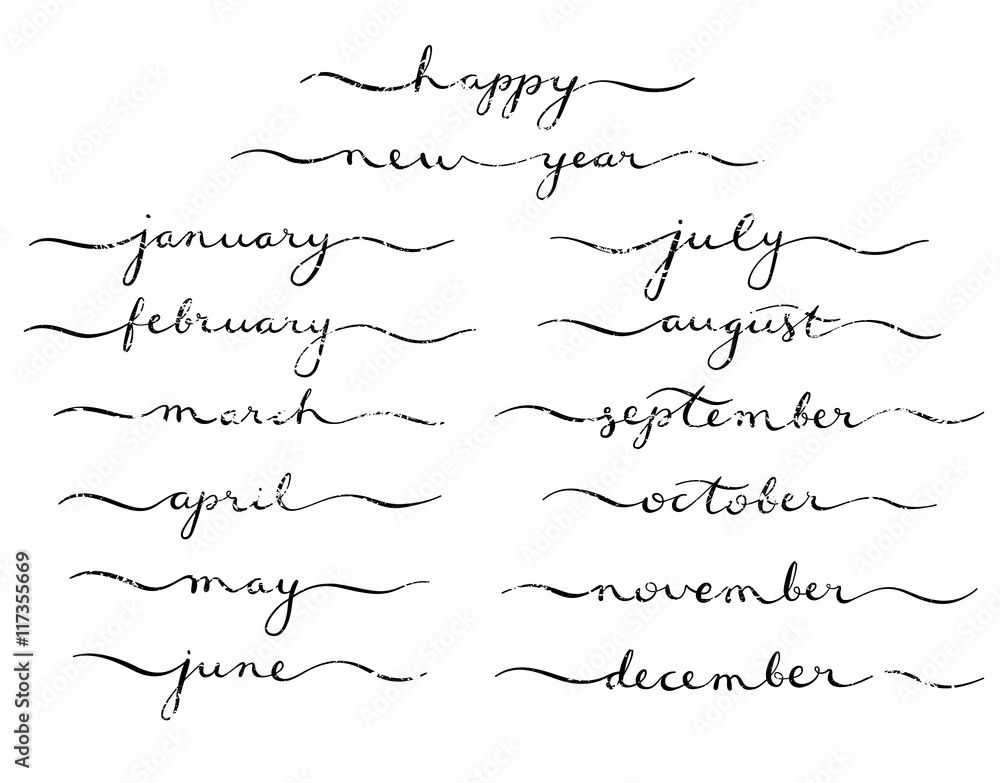 happy
new year
january
february
march
april
may
june
july
august
september
october
november
december
Adobe Stock | #117355669